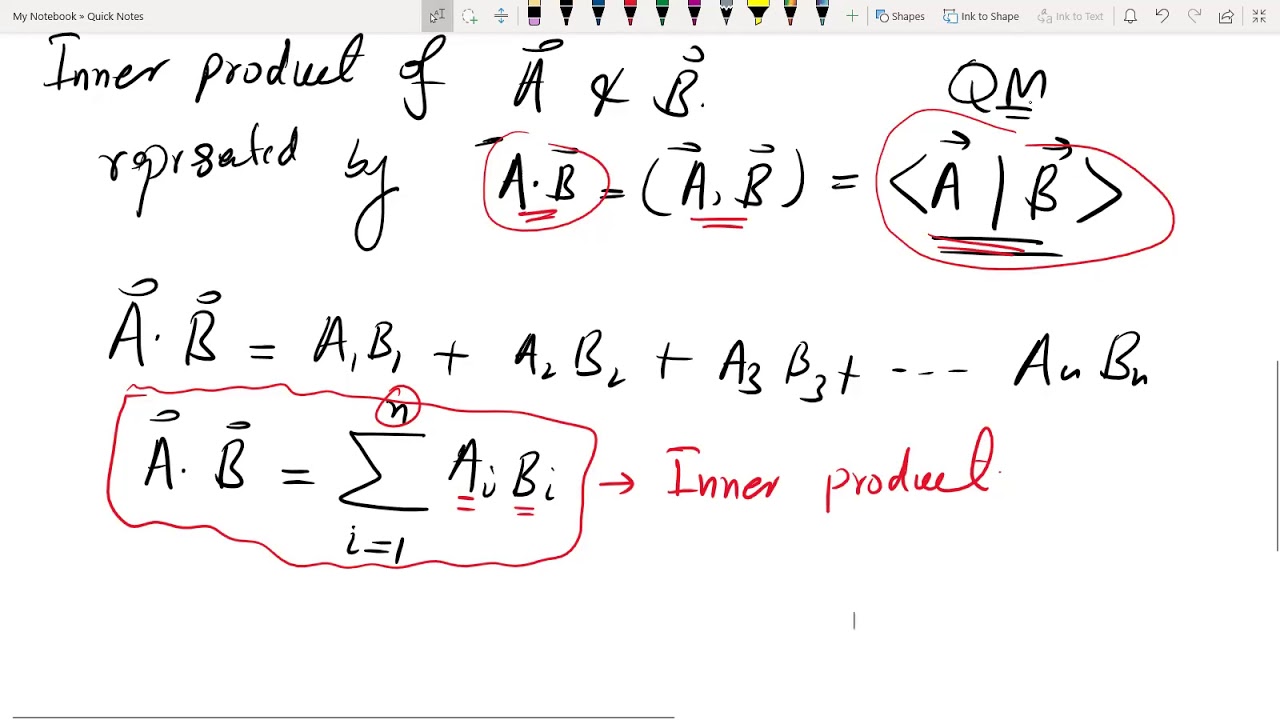 My Notebook » Quick Notes
Shapes Ink to Shape Ink to Text
Inner product of A⃗ & B⃗. QM
reprsented by A⃗·B⃗ = (A⃗, B⃗) = <A⃗ | B⃗>
A⃗· B⃗ = A₁B₁ + A₂ B₂ + A₃ B₃ + --- Aₙ Bₙ
A⃗· B⃗ = ∑ⁿᵢ₌₁ Aᵢ Bᵢ → Inner product